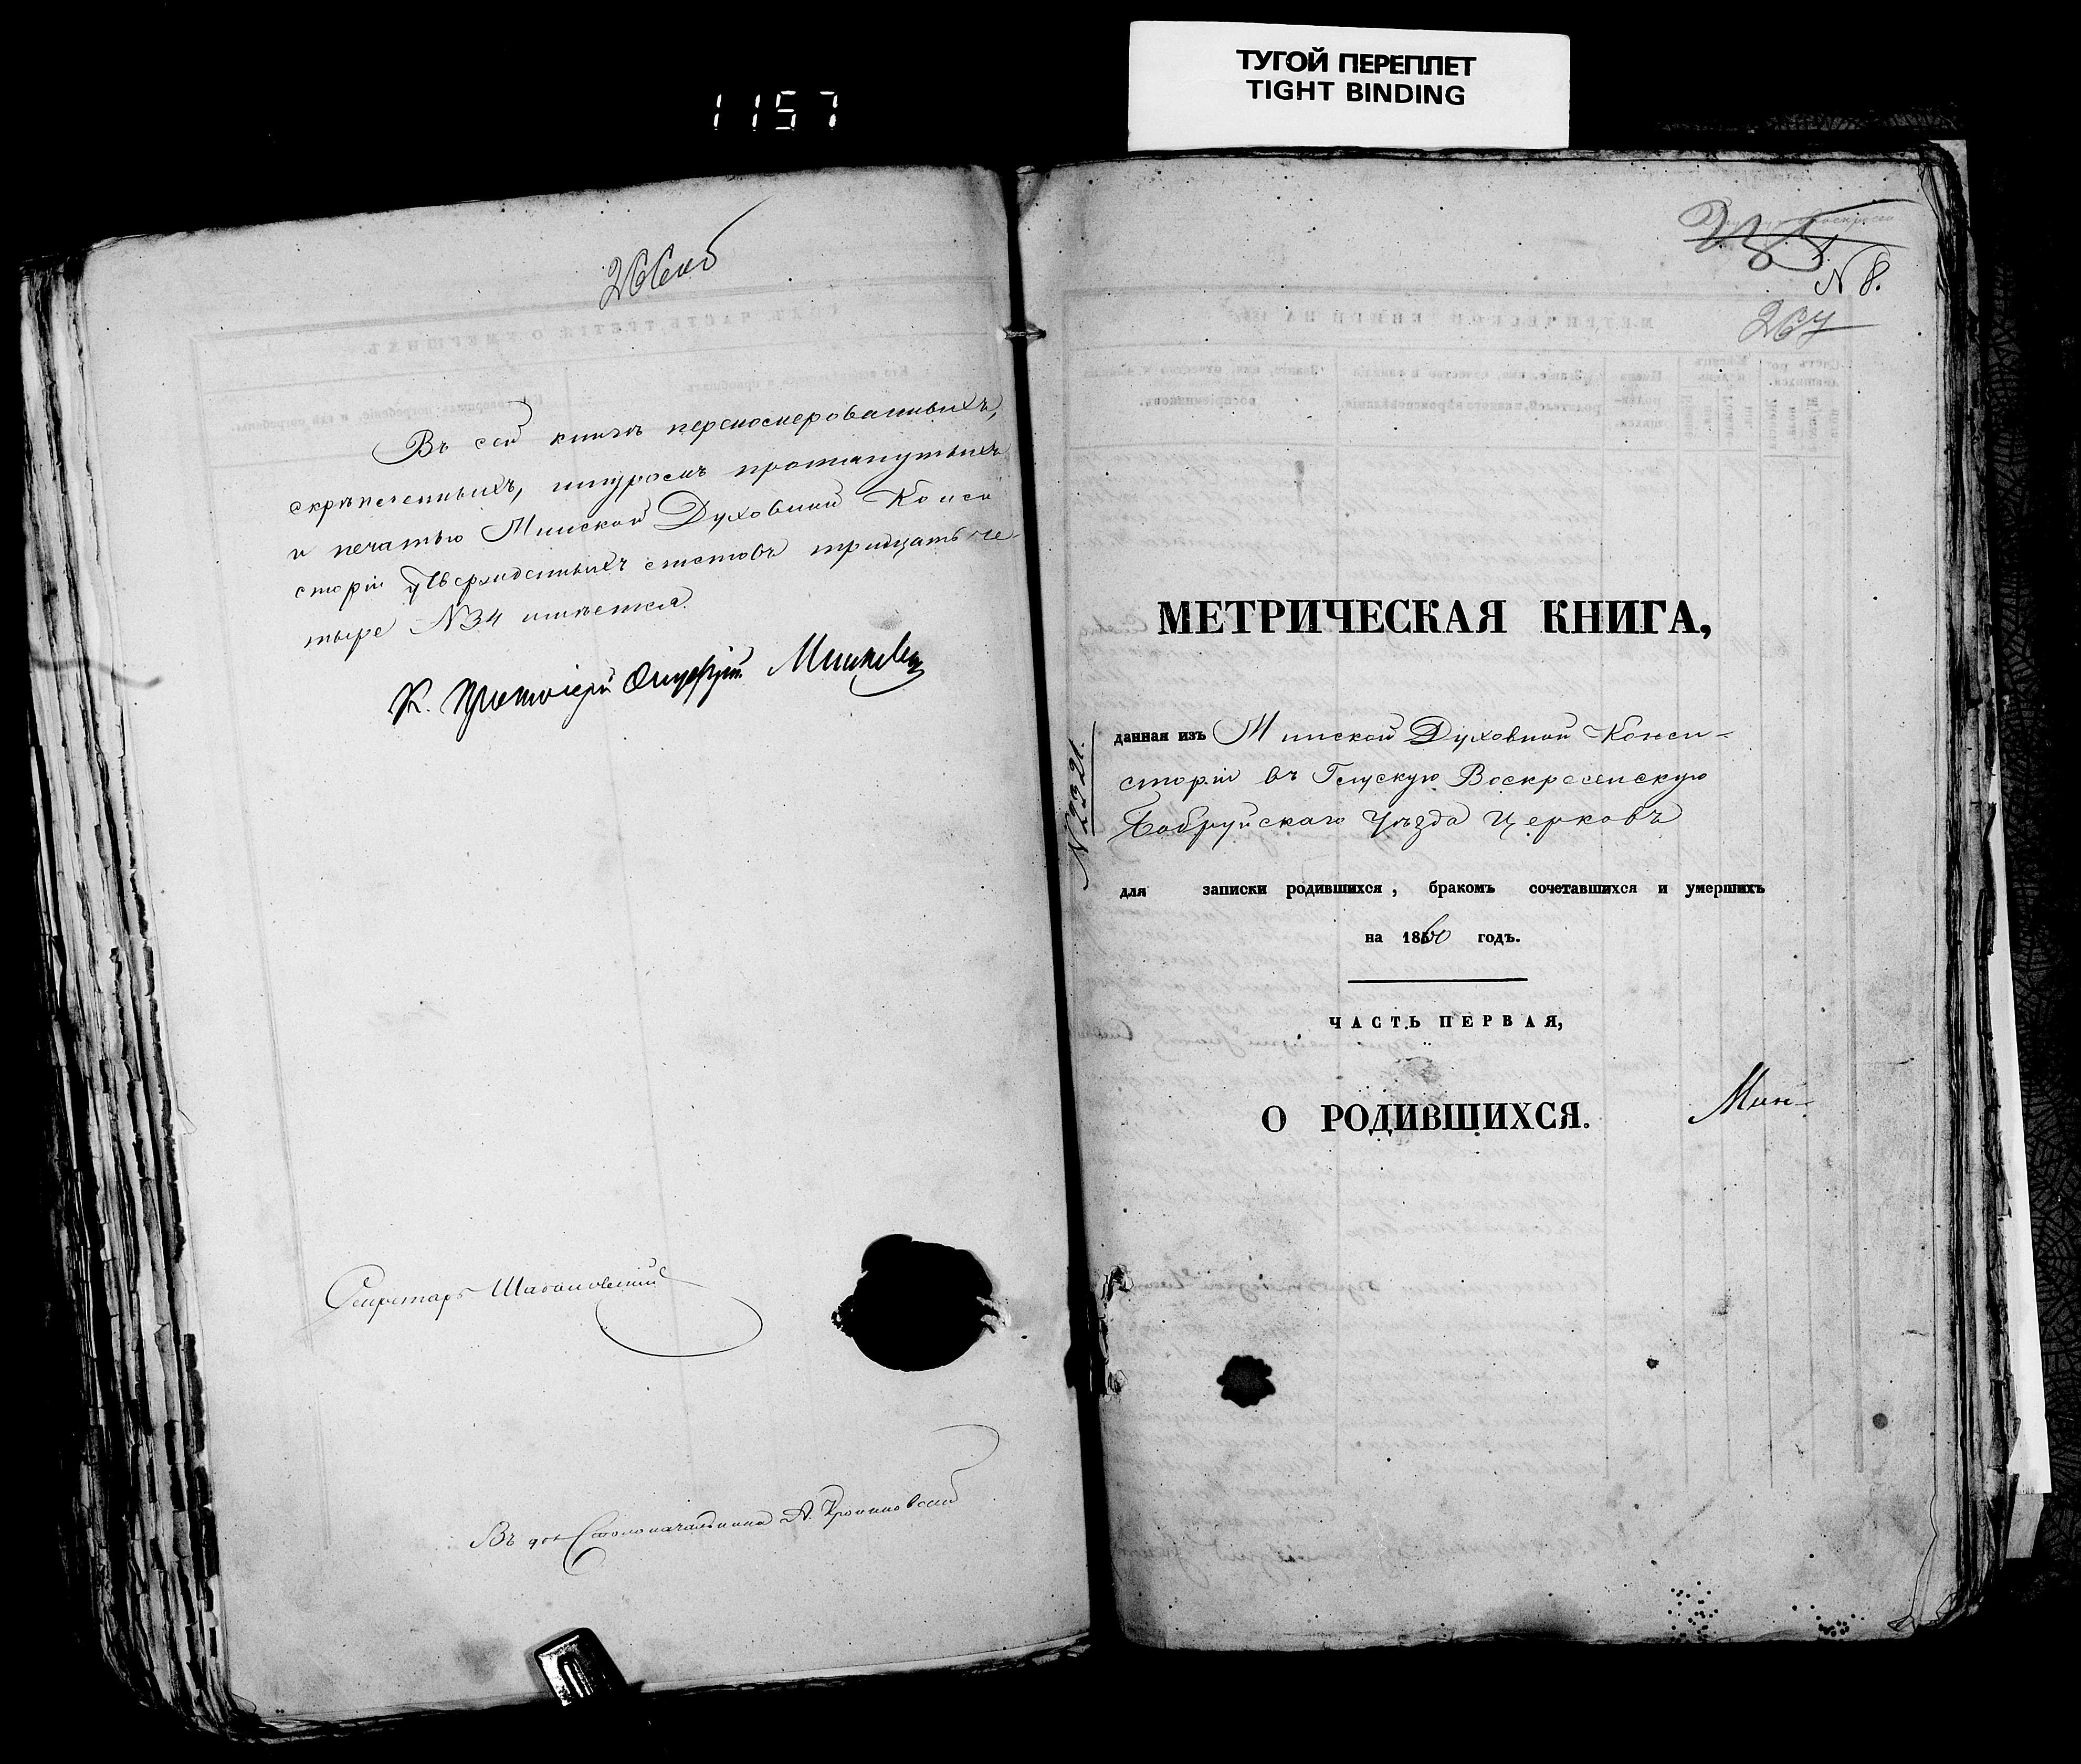 1157
ТУГОЙ ПЕРЕПЛЕТ
TIGHT BINDING
266об
Въ сей книгѣ перономерованныхъ,
скрѣпленныхъ, шнуромъ протянутыхъ
и печатью Минской Духовной Конси
сторіи утвержденныхъ листовъ тридцать че-
тыре №34 имѣется.
К. Протоіерей
Секретарь
Въ дол. Столоначальника А.
№ 8.
267
МЕТРИЧЕСКАЯ КНИГА,
данная изъ Минской Духовной Конси-
сторіи въ Глускую Воскресенскую
Бобруйскаго Уѣзда Церковь
№2321.
для записки родившихся, бракомъ сочетавшихся и умершихъ
на 1860 годъ.
ЧАСТЬ ПЕРВАЯ,
О РОДИВШИХСЯ.
Мин-